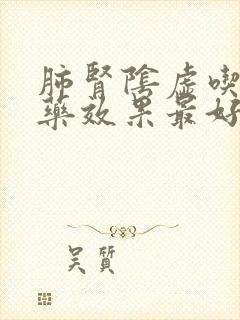 肺腎陰虛喫
藥效果最好
吴質